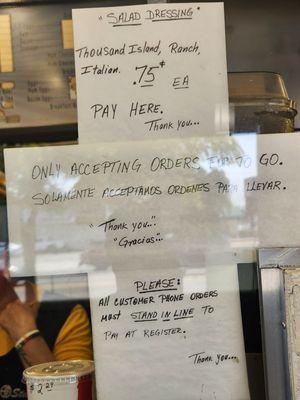 "SALAD DRESSING"
Thousand Island, Ranch,
Italian. .75¢ EA
PAY HERE.
Thank you...
ONLY ACCEPTING ORDERS FOR TO GO.
SOLAMENTE ACEPTAMOS ORDENES PARA LLEVAR.
"Thank you..."
"Gracias..."
PLEASE:
All CUSTOMER PHONE ORDERS
MUST STAND IN LINE TO
PAY AT REGISTER.
Thank you...
$2.29